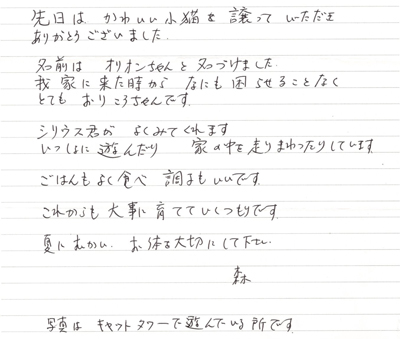 先日は かわいい小猫を 譲って いただき
ありがとうございました.
名前は オリオンちゃんと 名づけました.
我家に来た時から なにも 困らせることなく
とても おりこうちゃんです.
シリウス君が よくみてくれます
いっしょに 遊んだり 家の中を走りまわったりしています.
ごはんもよく食べ 調子もいいです.
これからも 大事に 育てていくつもりです.
夏にむかい お体を大切にして下さい.
森
写真は キャットタワーで遊んでいる所です